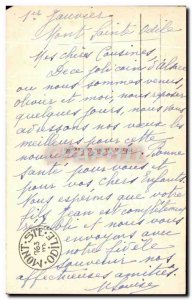 1er Janvier
Mont Saint Odile
Mes chères Cousines
De ce joli coin d'Alsace
où nous sommes venus,
olivier et moi, nous reposer
quelques jours, nous vous
adressons nos vœux les
meilleurs pour cette
nouvelle Bonne
Santé pour vous, pour
vos chers Enfants.
Nous espérons que votre
fils Jean est complètement
et nous vous
envoyons avec
notre fidèle
souvenir nos
affectueuses amitiés.
MONT STE ODILE